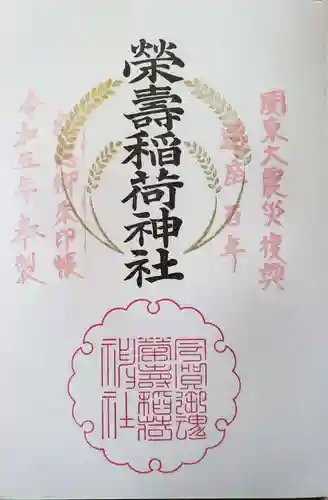 関東大震災復興
遷座百年
榮壽稲荷神社
御朱印帳
令和五年奉製
賀御魂
榮壽稲荷
神社